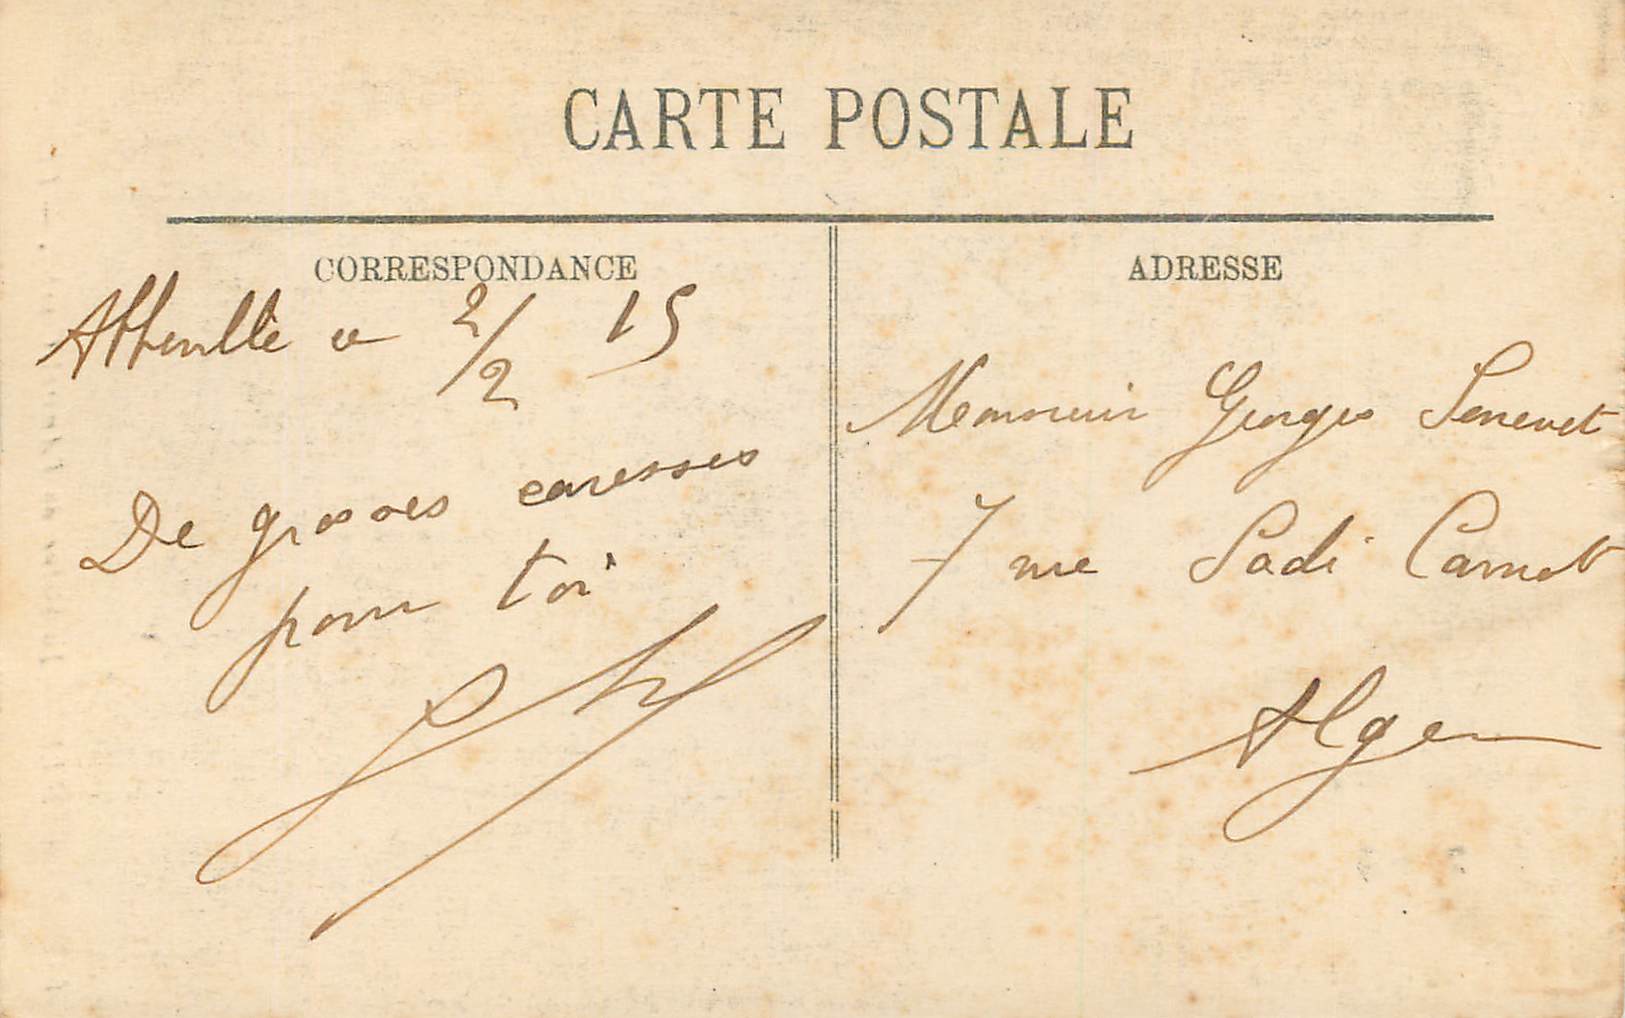 CARTE POSTALE
CORRESPONDANCE
Abbeville le 2/2 15
De grosses caresses
pour toi
ADRESSE
Monsieur Georges Senevet
7 rue Sadi Carnot
Alger